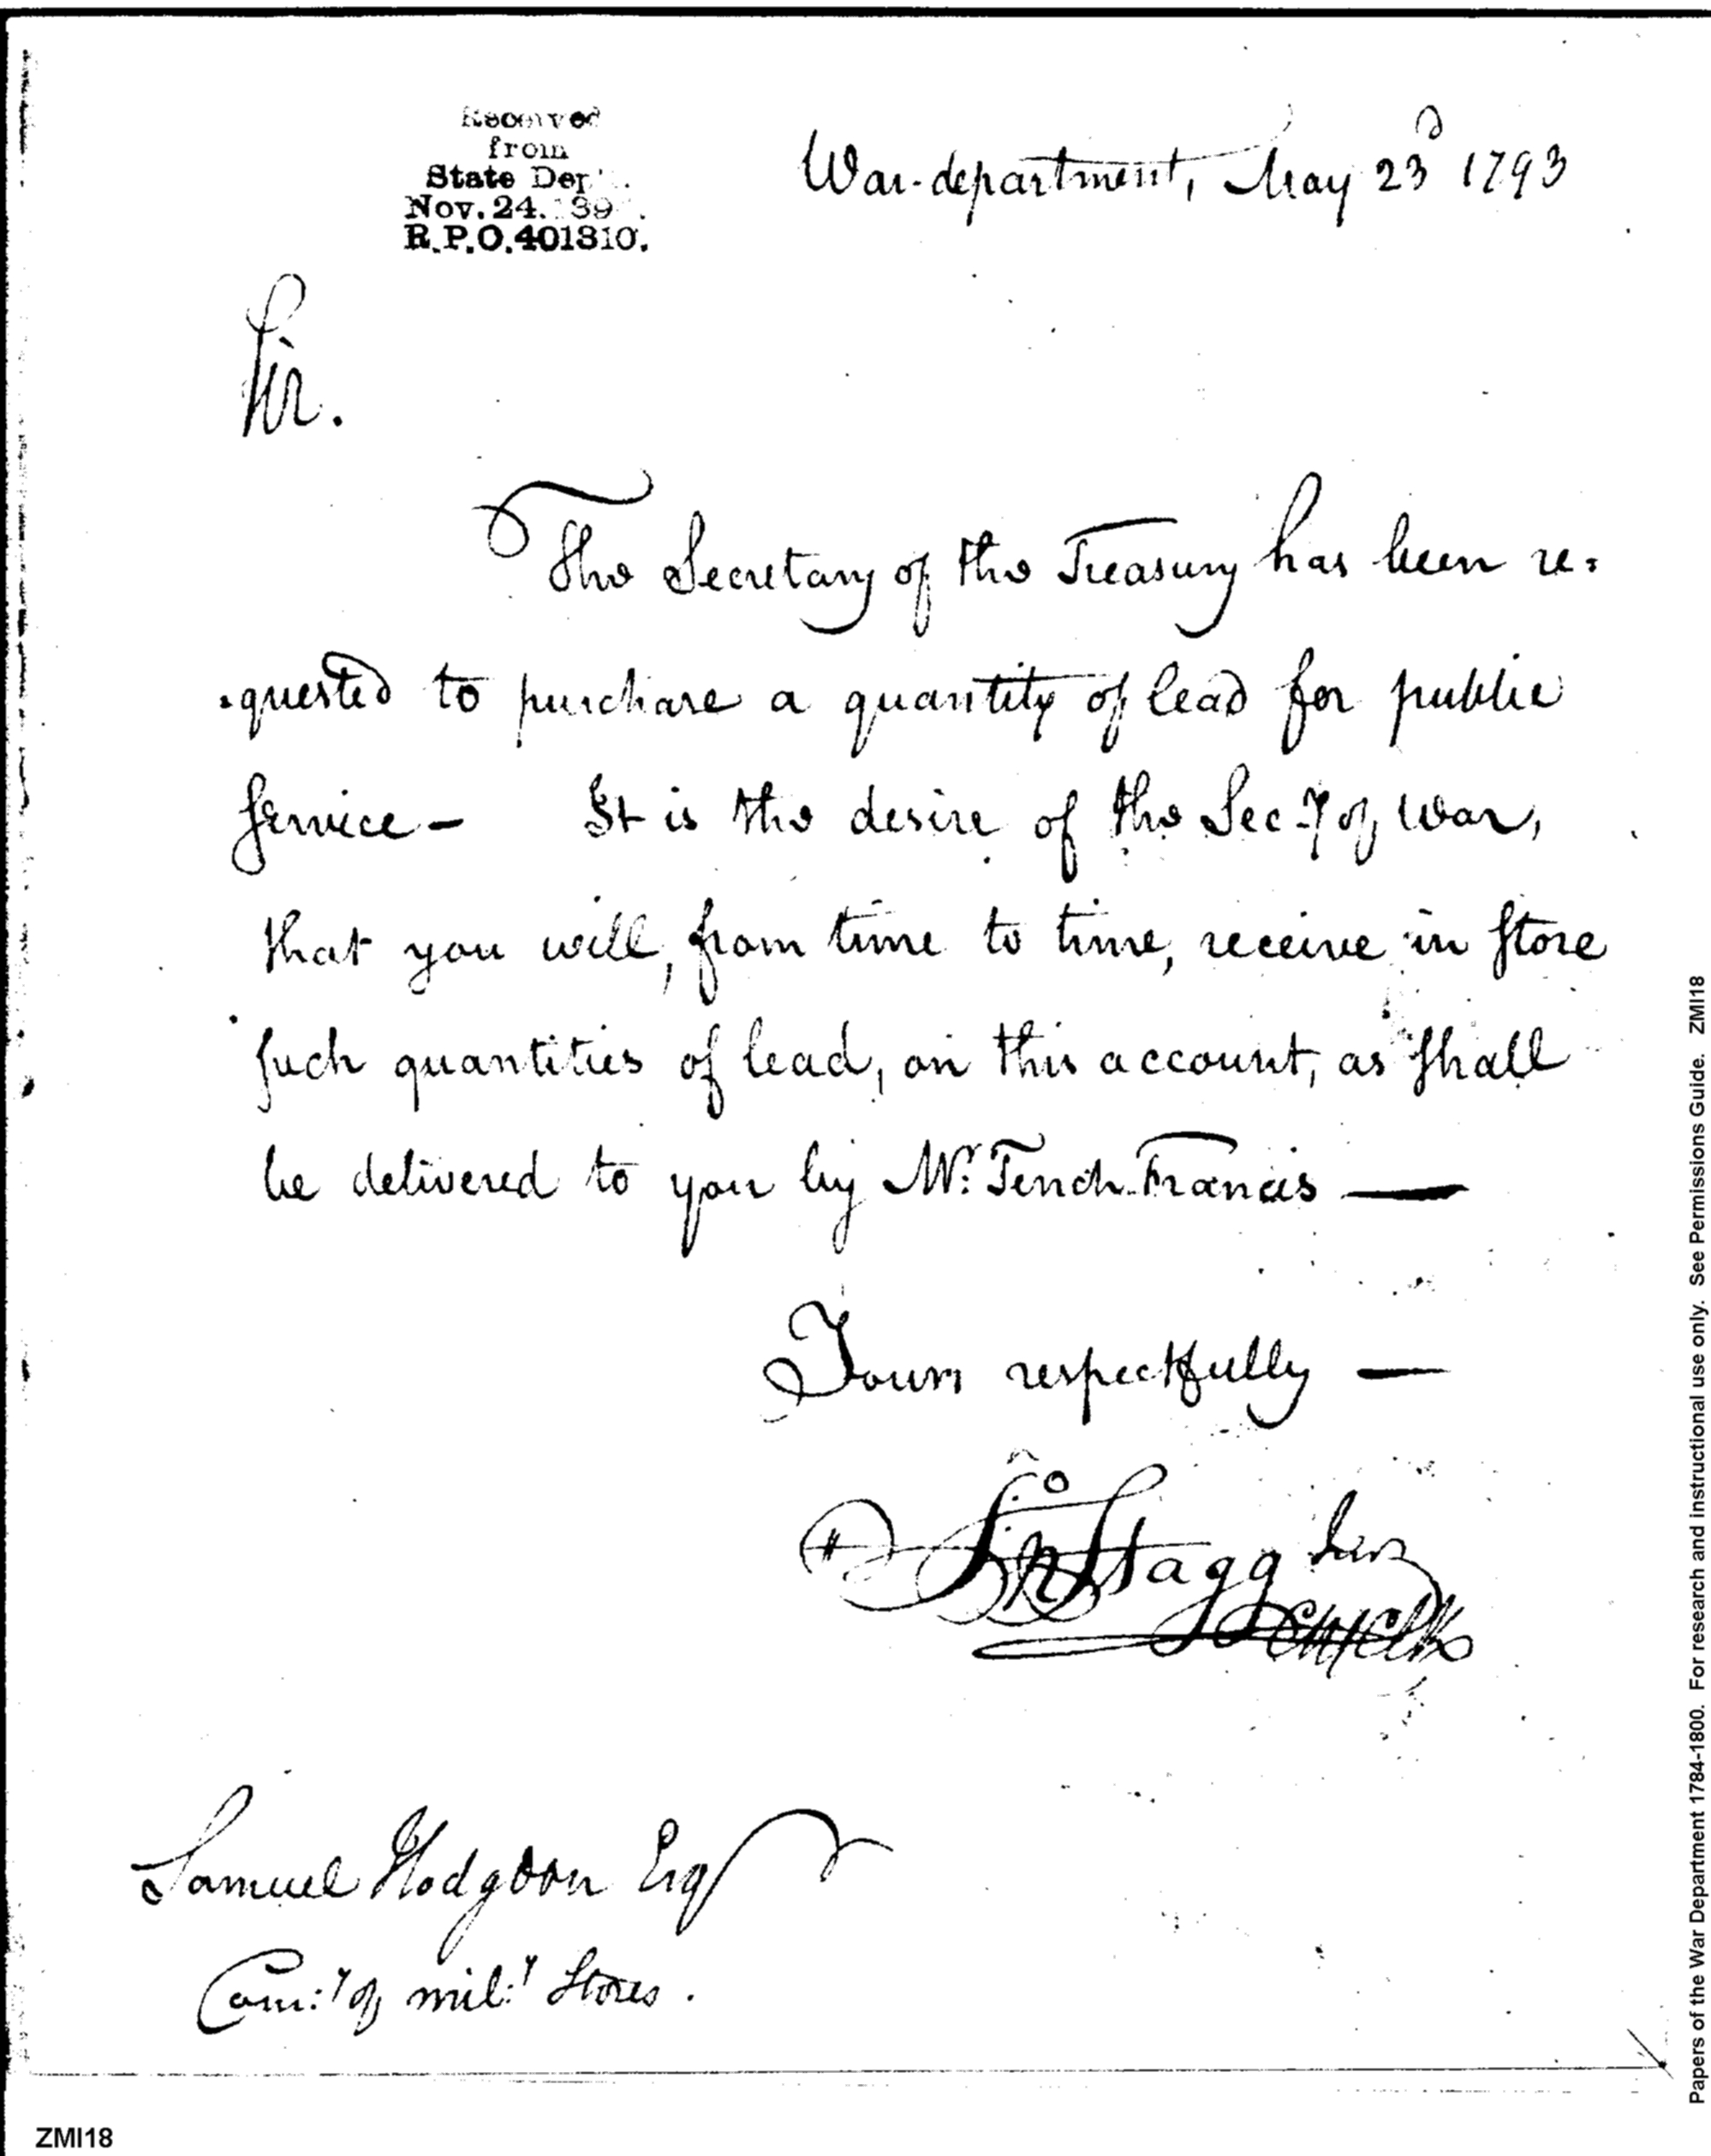 Received
from
State Dep
Nov. 24. 39
R.P.O. 401310.
War-department, May 23d 1793
Sir.
The Secretary of the Treasury has been re=
=quested to purchase a quantity of lead for public
Service – It is the desire of the Sec.y of War,
that you will, from time to time, receive in Store
such quantities of lead, on this account, as shall
be delivered to you by Mr: Tench Francis —
Yours respectfully —
Jno Stagg Junr
Ch Clk
Samuel Hodgdon Esqr
Com:y of mil:y Stores.
ZMI18
Papers of the War Department 1784-1800. For research and instructional use only. See Permissions Guide. ZMI18